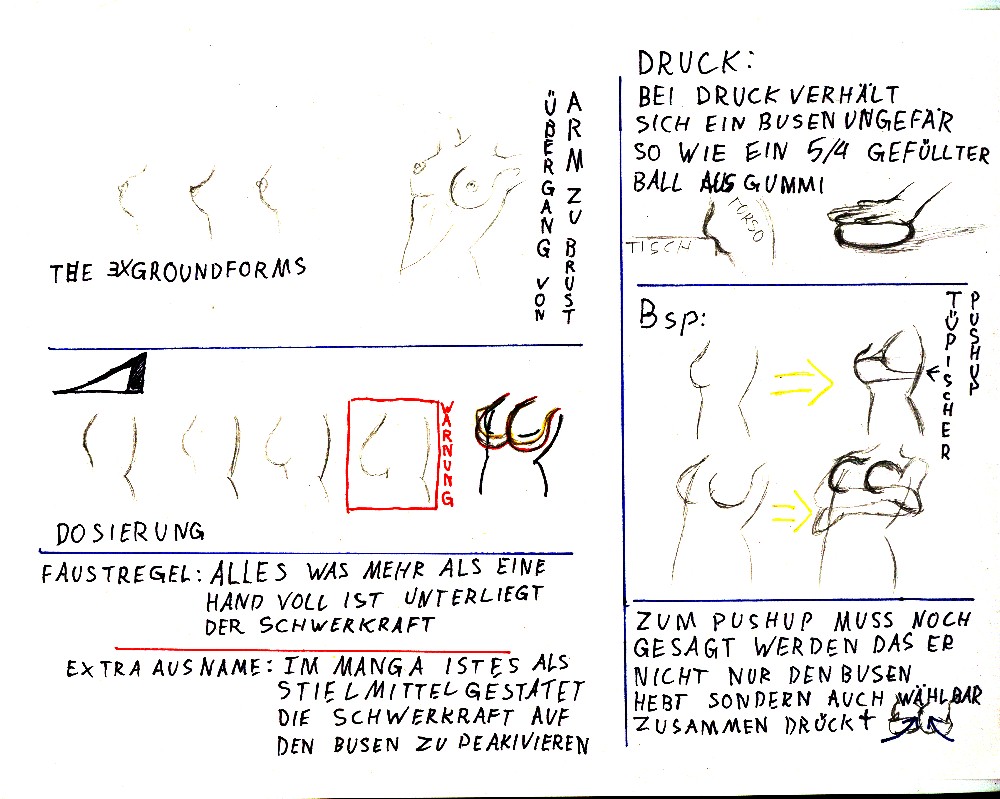 THE 3X GROUNDFORMS
ÜBERGANG VON
ARM ZU BRUST
WARNUNG
DOSIERUNG
FAUSTREGEL: ALLES WAS MEHR ALS EINE
HAND VOLL IST UNTERLIEGT
DER SCHWERKRAFT
EXTRA AUSNAME: IM MANGA IST ES ALS
STIELMITTEL GESTATET
DIE SCHWERKRAFT AUF
DEN BUSEN ZU DEAKIVIEREN
DRUCK:
BEI DRUCK VERHÄLT
SICH EIN BUSEN UNGEFÄR
SO WIE EIN 5/4 GEFÜLLTER
BALL AUS GUMMI
TISCH
TORSO
Bsp:
TÜPISCHER
PUSHUP
ZUM PUSHUP MUSS NOCH
GESAGT WERDEN DAS ER
NICHT NUR DEN BUSEN
HEBT SONDERN AUCH WÄHLBAR
ZUSAMMEN DRÜCKT